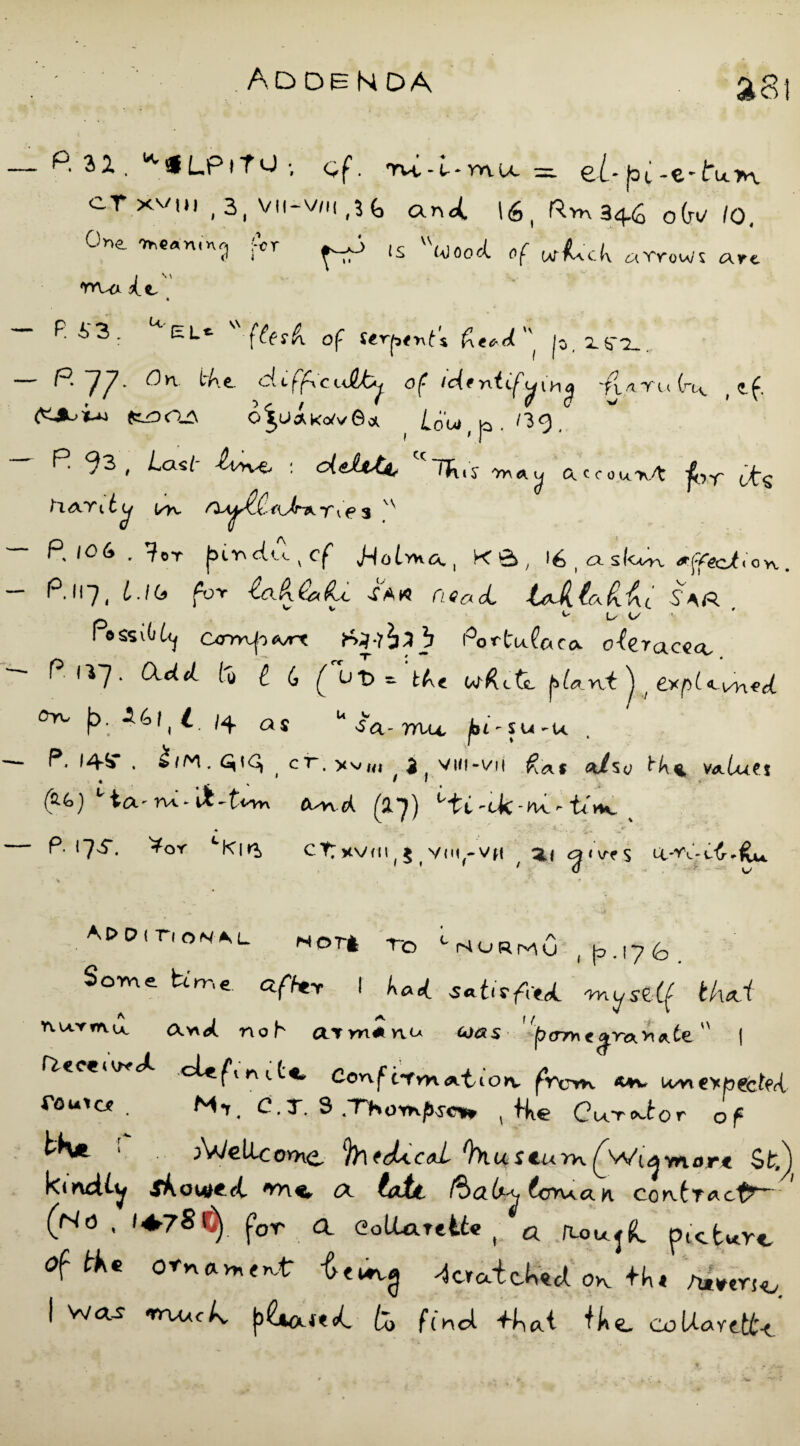 ADDENDA 281
— P. 32. ᵘLPITU; cf. ni-i-mu = el-pi-e-tum
CT XVIII, 3, VII-VIII, 36 and 16, Rm 346 obv 10.
One meaning for is "wood of which arrows are
made"
— P. 53. ᵘEL "flesh of serpent's head", p. 252.
— P. 77. On the difficulty of identifying ḫaruбu, cf.
ὀξυάκανθα Löw, p. 139.
— P. 93, Last line: delete "This may account for its
rarity in syllabaries"
— P. 106. For pindû, cf Holma, KB, 16, a skin affection.
— P. 117, l. 16 for laḫlaḫi SAR read laḫlaḫḫi SAR.
Possibly compare Portulaca oleracea.
— P 127. Add to l 6 ("UD = the white plant), explained
on p. 261, l. 14 as ᵘ sa-mu pi-ṣu-u.
— P. 145. ŠIM.GIG, CT. XVIII, 3, VIII-VII has also the values
(26) ta-ni-it-tum and (27) ti-ik-ni-tim.
— P. 175. For KIB CT. XVIII, 3, VIII-VII, 21 gives u-ri-ib-ḫu
ADDITIONAL NOTE TO NURMÛ, p. 176.
Some time after I had satisfied myself that
nurmû and not armânu was "pomegranate" I
received definite confirmation from an unexpected
source. Mr. C. J. S. Thompson, the Curator of
the Wellcome Medical Museum (Wigmore St.)
kindly showed me a late Babylonian contract
(No. 14781) for a collarette, a rough picture
of the ornament being scratched on the reverse.
I was much pleased to find that the collarette